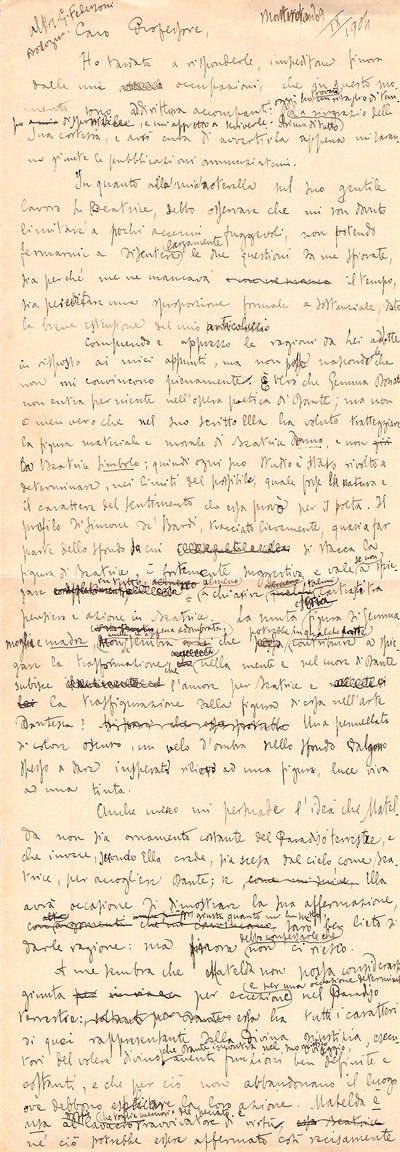 all'on. G. Federzoni
Bologna
Monterotondo
IX 1904
Caro Professore,
Ho tardato a risponderle, impedito fino
dalle mie occupazioni, che in questo mo-
mento sono addirittura
Sua cortesia, e avrò cura di avvertirla appena mi saran-
no giunte le pubblicazioni annunziatemi.
In quanto alla mia noterella sul suo gentile
lavoro su Beatrice, debbo osservare che mi son dovuto
limitare a pochi accenni fuggevoli, non potendo
fermarmi a discutere largamente le due questioni da me sfiorate,
sia perché me ne mancava il tempo,
sia per evitare una sproporzione formale e sostanziale, data
la breve estensione del mio articoluccio
Comprendo e apprezzo le ragioni da Lei addotte
in risposta ai miei appunti, ma non posso nasconderle che
non mi convincono pienamente. È vero che Gemma Donati
non entra per niente nell'opera poetica di Dante; ma non
è men vero che nel suo scritto Ella ha voluto tratteggiare
la figura materiale e morale di Beatrice donna, e non già
la Beatrice simbolo; quindi ogni suo studio è stato rivolto a
determinare, nei limiti del possibile, quale fosse la natura e
il carattere del sentimento che essa provò per il poeta. Il
profilo di Simone de' Bardi, tracciato lievemente, quasi a far
parte dello sfondo su cui si stacca la
figura di Beatrice, è fortemente suggestivo e vale se non a spie-
gare in tutto, almeno a chiarire
pensiero e azione in Beatrice. La muta figura di Gemma
moglie e madre, appena adombrata, non che potrebbe in qualche parte contribuire a spie-
gare la trasformazione che nella mente e nel cuore di Dante
subisce l'amore per Beatrice e
la trasfigurazione della figura di essa nell'arte
Dantesca? Una pennellata
di colore oscuro, un velo d'ombra nello sfondo valgono
spesso a dare insperato rilievo ad una figura, luce viva
ad una tinta.
Anche meno mi persuade l'idea che Matel-
da non sia ornamento costante del Paradiso terrestre, e
che invece, secondo Ella crede, sia scesa dal cielo come Bea-
trice, per accogliere Dante; se Ella
avrà occasione di dimostrare la sua affermazione,
sarò ben lieto di
darle ragione: ma finora debbo confessarle che non ci riesco.
A me sembra che Matelda non possa considerarsi
giunta per eccezione e per una occasione determinata nel Paradiso
terrestre: essa ha tutti i caratteri
di quei rappresentanti della Divina Giustizia, esecu-
tori del volere divino, che Dante incontra nel suo viaggio, aventi funzioni ben definite e
costanti, e che per ciò non abbandonano il luogo
ove debbono esplicare la loro azione. Matelda è
ravvivatore di virtù,
né ciò potrebbe essere affermato così recisamente